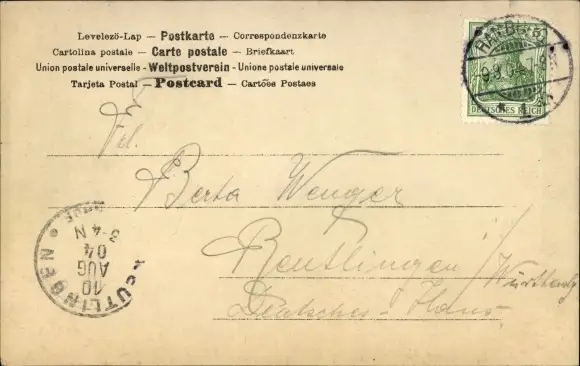 Levelező-Lap — Postkarte — Correspondenzkarte
Cartolina postale — Carte postale — Briefkaart
Union postale universelle – Weltpostverein – Unione postale universale
Tarjeta Postal — Postcard — Cartões Postaes
DEUTSCHES REICH
Frl.
Berta Wenger
Reutlingen / Württbg
Deutsches-Haus
REUTLINGEN
10
AUG
04
3-4 N